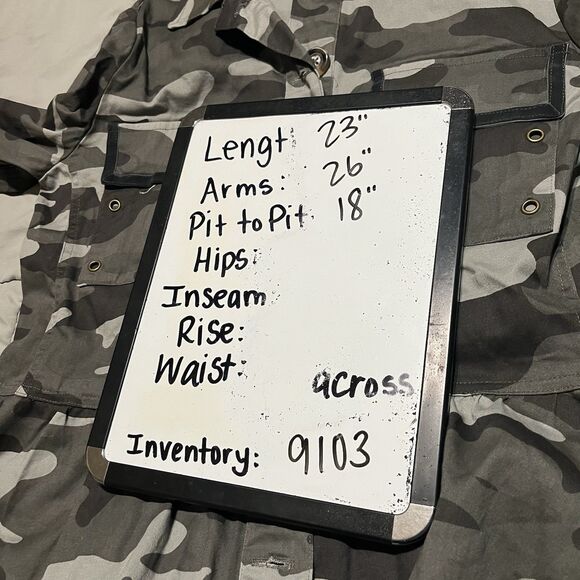 Lengt 23"
Arms: 26"
Pit to Pit 18"
Hips:
Inseam
Rise:
Waist:
across
Inventory: 9103